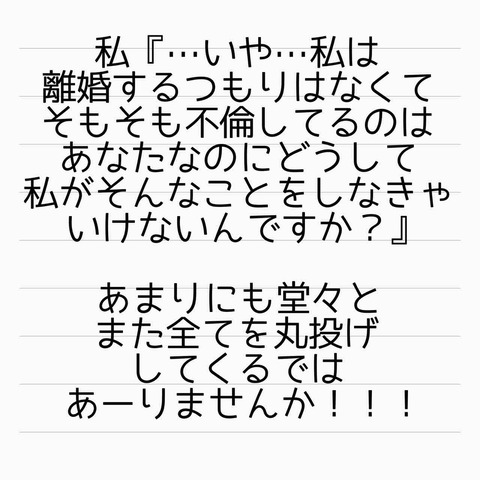 私『…いや…私は
離婚するつもりはなくて
そもそも不倫してるのは
あなたなのにどうして
私がそんなことをしなきゃ
いけないんですか？』
あまりにも堂々と
また全てを丸投げ
してくるでは
あーりませんか！！！